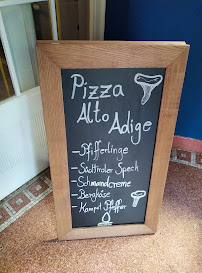 Pizza
Alto
Adige
- Pfifferlinge
- Südtiroler Speck
- Schmandcreme
- Bergkäse
- Kampot Pfeffer